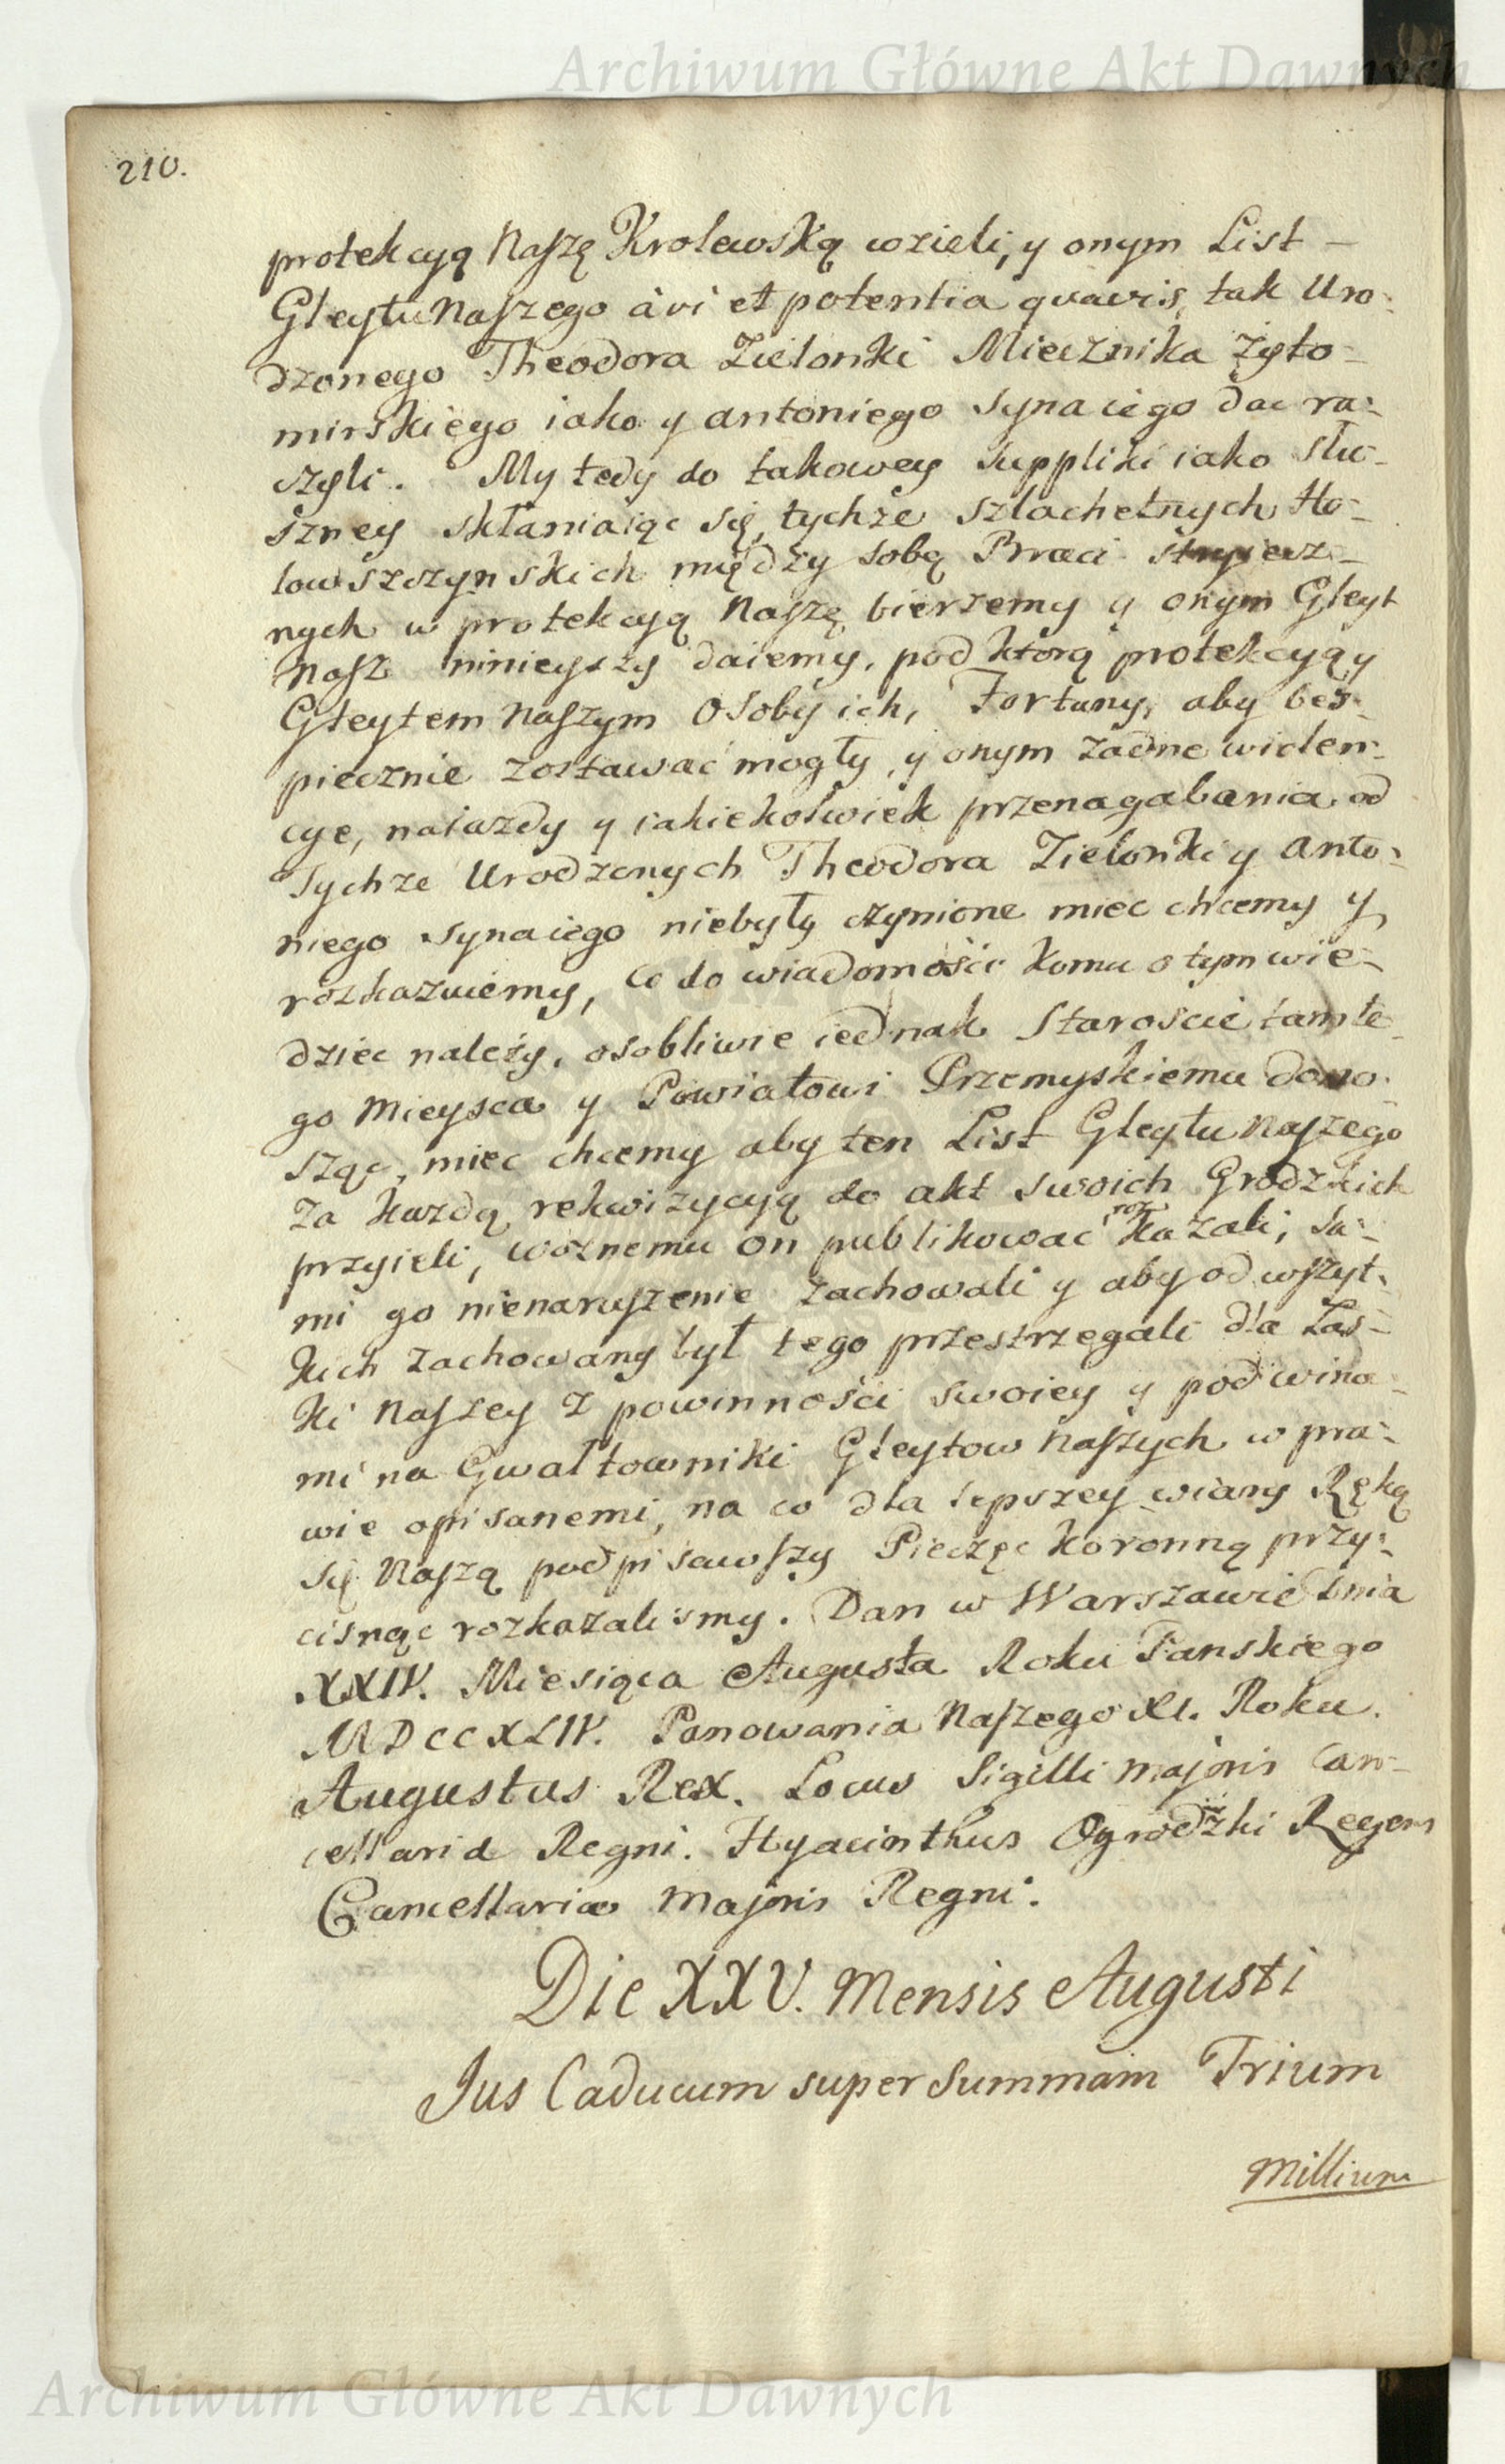 Archiwum Główne Akt Dawnych
210.
protekcyą Naszę Krolewską wzieli, y onym List –
Gleytu Naszego à vi et potentia quavis, tak Uro-
dzonego Theodora Zielonki Miecznika Żyto-
mirskiego iako y Antoniego Syna iego dac ra-
czyli. My tedy do takowey Suppliki iako słu-
szney skłaniaiąc się, tychże Szlachetnych Ho-
lowszczynskich między sobą Braci Stryiecz-
nych w protekcyą Naszę bierzemy y onym Gleyt
Nasz ninieyszy daiemy, pod ktorą protekcyą y
Gleytem Naszym Osoby ich, Fortuny, aby bes-
piecznie zostawać mogły, y onym żadne wiolen-
cye, naiazdy y iakiekolwiek przenagabania od
Tychże Urodzonych Theodora Zielonki y Anto-
niego Syna iego niebyły czynione miec chcemy y
rozkazuiemy, co do wiadomości komu o tym wie-
dziec należy, osobliwie iednak Staroscie tamte-
go Mieysca y Powiatowi Przemyskiemu dono-
sząc, miec chcemy aby ten List Gleytu Naszego
za każdą rekwizycyą do akt swoich Grodzkich
przyieli, woznemu on publikować roz kazali, sa-
mi go nienaruszenie zachowali y aby od wszyt-
kich zachowany był tego przestrzegali dla Łas-
ki Naszey z powinności swoiey y pod wina-
mi na Gwałtowniki Gleytow Naszych w pra-
wie opisanemi, na co dla lepszey wiary Ręką
się Naszą podpisawszy Pieczęc koronną przy-
cisnąc rozkazalismy. Dan w Warszawie Dnia
XXIV. Miesiąca Augusta Roku Panskiego
MDCCXLIV. Panowania Naszego XI. Roku.
Augustus Rex. Locus Sigilli Majoris Can-
cellariæ Regni. Hyacinthus Ogrodzki Regens
Cancellariæ Majoris Regni.
Die XXV. Mensis Augusti
Jus Caducum super Summam Trium
Millium
Archiwum Główne Akt Dawnych